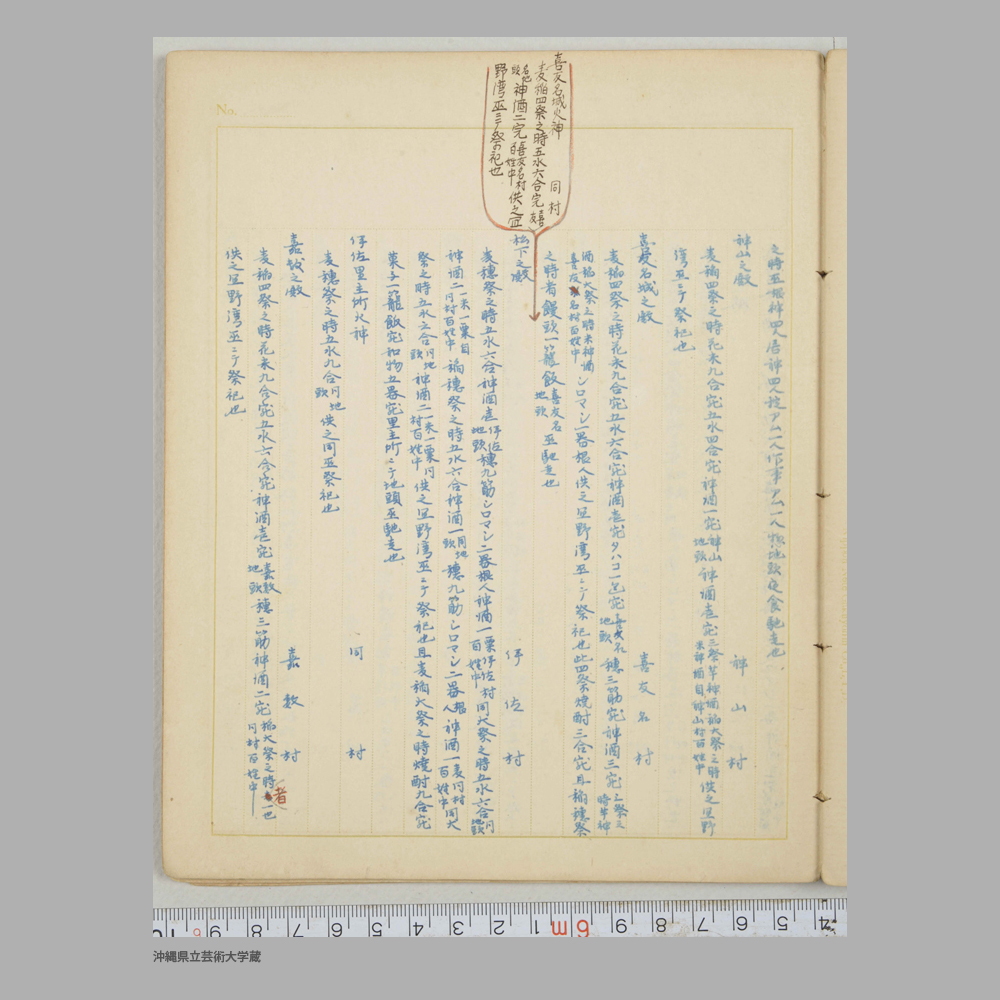 之時五根神四人居神四人掟アム一人作事アム一人惣地頭夜食馳走也
神山之殿 神山村
麦稲四祭之時花米九合宛五水四合宛神酒一宛神山地頭神酒壱宛三祭芋神酒稲大祭之時米神酒自神山村百姓中供之宜野
湾巫ニテ祭祀也
喜友名城之殿 喜友名村
麦稲四祭之時花米九合宛五水六合宛神酒壱宛タハコ一包宛喜友名地頭穂三筋宛神酒三宛三祭之時芋神
酒稲大祭之時米神酒喜友名村百姓中シロマシ一器根人供之宜野湾巫ニテ祭祀也此四祭焼酎三合宛且稲穂祭
之時者饅頭一籠飯喜友名地頭巫馳走也
喜友名城火神 同村
麦稲四祭之時五水六合宛喜友
名地頭神酒二宛喜友名村百姓中供之宜
野湾巫ニテ祭祀也
松下之殿 伊佐村
麦穂祭之時五水六合神酒壱伊佐地頭穂九筋シロマシ二器根人神酒一粟伊佐村百姓中同大祭之時五水六合同地頭
神酒二一米一粟自同村百姓中稲穂祭之時五水六合神酒一同地頭穂九筋シロマシ二器根人神酒一麦同村百姓中同大
祭之時五水六合同地頭神酒二一米一粟同村百姓中供之宜野湾巫ニテ祭祀也且麦稲大祭之時焼酎九合宛
菓子一籠飯宛和物五器宛里主所ニテ地頭巫馳走也
伊佐里主所火神 同村
麦穂祭之時五水九合同地頭供之同巫祭祀也
嘉数之殿 嘉数村
麦稲四祭之時花米九合宛五水六合宛神酒壱宛嘉数地頭穂三筋神酒二宛稲大祭之時者一也同村百姓中
供之宜野湾巫ニテ祭祀也
No.
沖縄県立芸術大学蔵